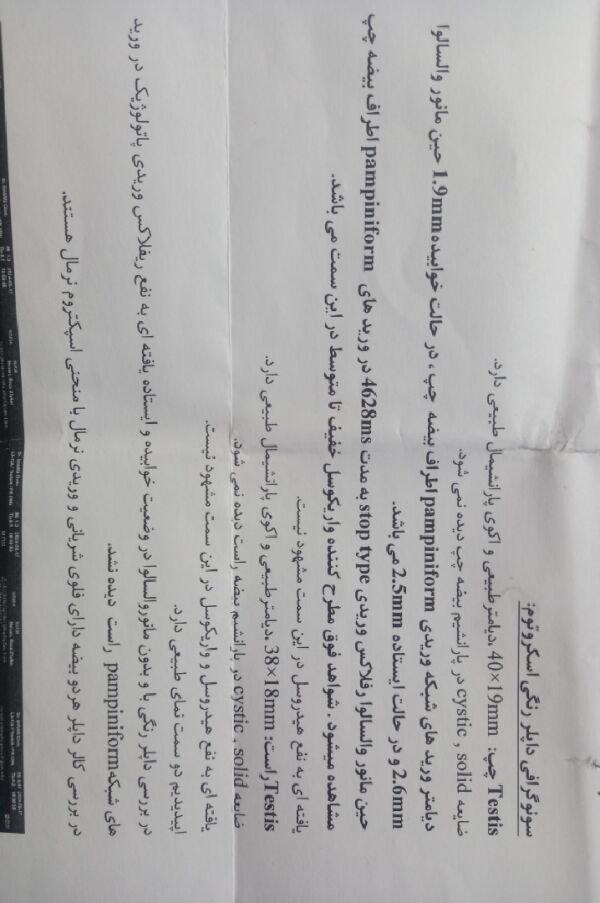 سونوگرافی داپلر رنگی اسکروتوم:
Testis چپ: 40×19mm ،دیامترطبیعی و اکوی پارانشیمال طبیعی دارد.
ضایعه cystic , solid در پارانشیم بیضه چپ دیده نمی شود.
دیامتر ورید های شبکه وریدی pampiniform اطراف بیضه چپ ، در حالت خوابیده 1.9mm حین مانور والسالوا
2.6mm و در حالت ایستاده 2.5mm می باشد.
حین مانور والسالوا رفلاکس وریدی stop type به مدت 4628ms در ورید های pampiniform اطراف بیضه چپ
مشاهده میشود . شواهد فوق مطرح کننده واریکوسل خفیف تا متوسط در این سمت می باشد.
یافته ای به نفع هیدروسل در این سمت مشهود نیست.
Testis راست: 38×18mm ،دیامترطبیعی و اکوی پارانشیمال طبیعی دارد.
ضایعه cystic , solid در پارانشیم بیضه راست دیده نمی شود.
یافته ای به نفع هیدروسل و واریکوسل در این سمت مشهود نیست.
اپیدیدیم دو سمت نمای طبیعی دارد.
در بررسی داپلر رنگی با و بدون مانوروالسالوا در وضعیت خوابیده و ایستاده یافته ای به نفع ریفلاکس وریدی پاتولوژیک در ورید
های شبکه pampiniform راست دیده نشد.
در بررسی کالر داپلر هردو بیضه دارای فلوی شریانی و وریدی نرمال با منحنی اسپکتروم نرمال هستند.